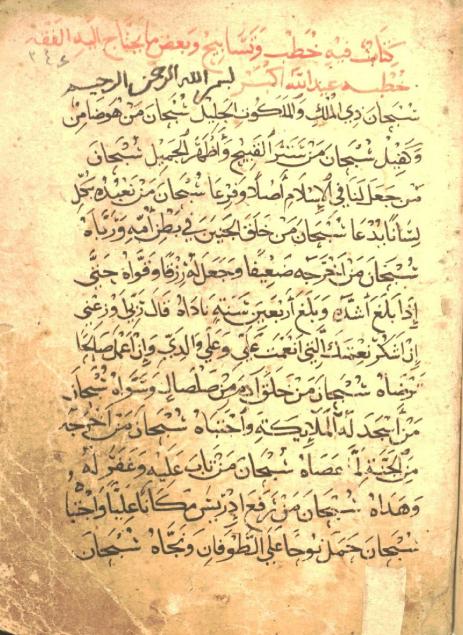 كتاب فيه خطب وتسابيح وبعض ما يحتاج اليه الفقه
٣٤٤
خطبه عيد الله اكبر بسم الله الرحمن الرحيم
سُبْحَانَ ذِي المُلكِ والملكوت الجليل سُبْحَانَ مَنْ هو ضامن
وكفيل سُبْحَانَ مَنْ سَتَرَ القَبِيحَ وَأَظْهَرَ الجَمِيلَ سُبْحَانَ
مَن جَعَلَ لنا في الإسلام أصلا وفرعا سُبْحَانَ مَن نعبده بكل
لِسَانا بدعا سُبْحَانَ مَن خَلَقَ الجَنِينَ في بَطنِ أمّهِ وربّاه
سُبْحَانَ مَنْ اخرجه ضعيفا وجعل له رزقا وقوّاه حتّى
إذا بَلَغَ أشدّه وبلغ أربعين سَنَة ناداه قال ربّ اوزعني
ان اشكر نعمتك التي انعمت علي وعلي والدي وان اعمل صالحا
ترضاه سُبْحَانَ مَن خلق ادم مِن صلصال وسوّاه سُبْحَانَ
مَن أسجد له الملايكة واجتباه سُبْحَانَ مَن اخرجه
من الجنّة لمّا عصاه سُبْحَانَ مَن تاب عليه وغفر له
وهداه سُبْحَانَ مَن رفع ادريس مَكَانا عليّا واجتبا
سُبْحَانَ حمل نوحا علي الطوفان ونجّاه سُبْحَانَ